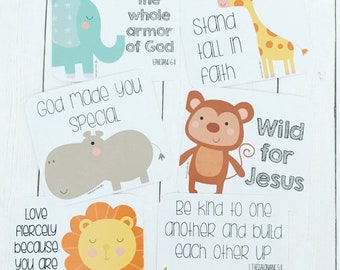 the
whole
armor
of God
EPHESIANS 6:11
Stand
tall in
faith
God made you
special
Wild
for
Jesus
Love
fiercely
because
you are
Be kind to one
another and build
each other up